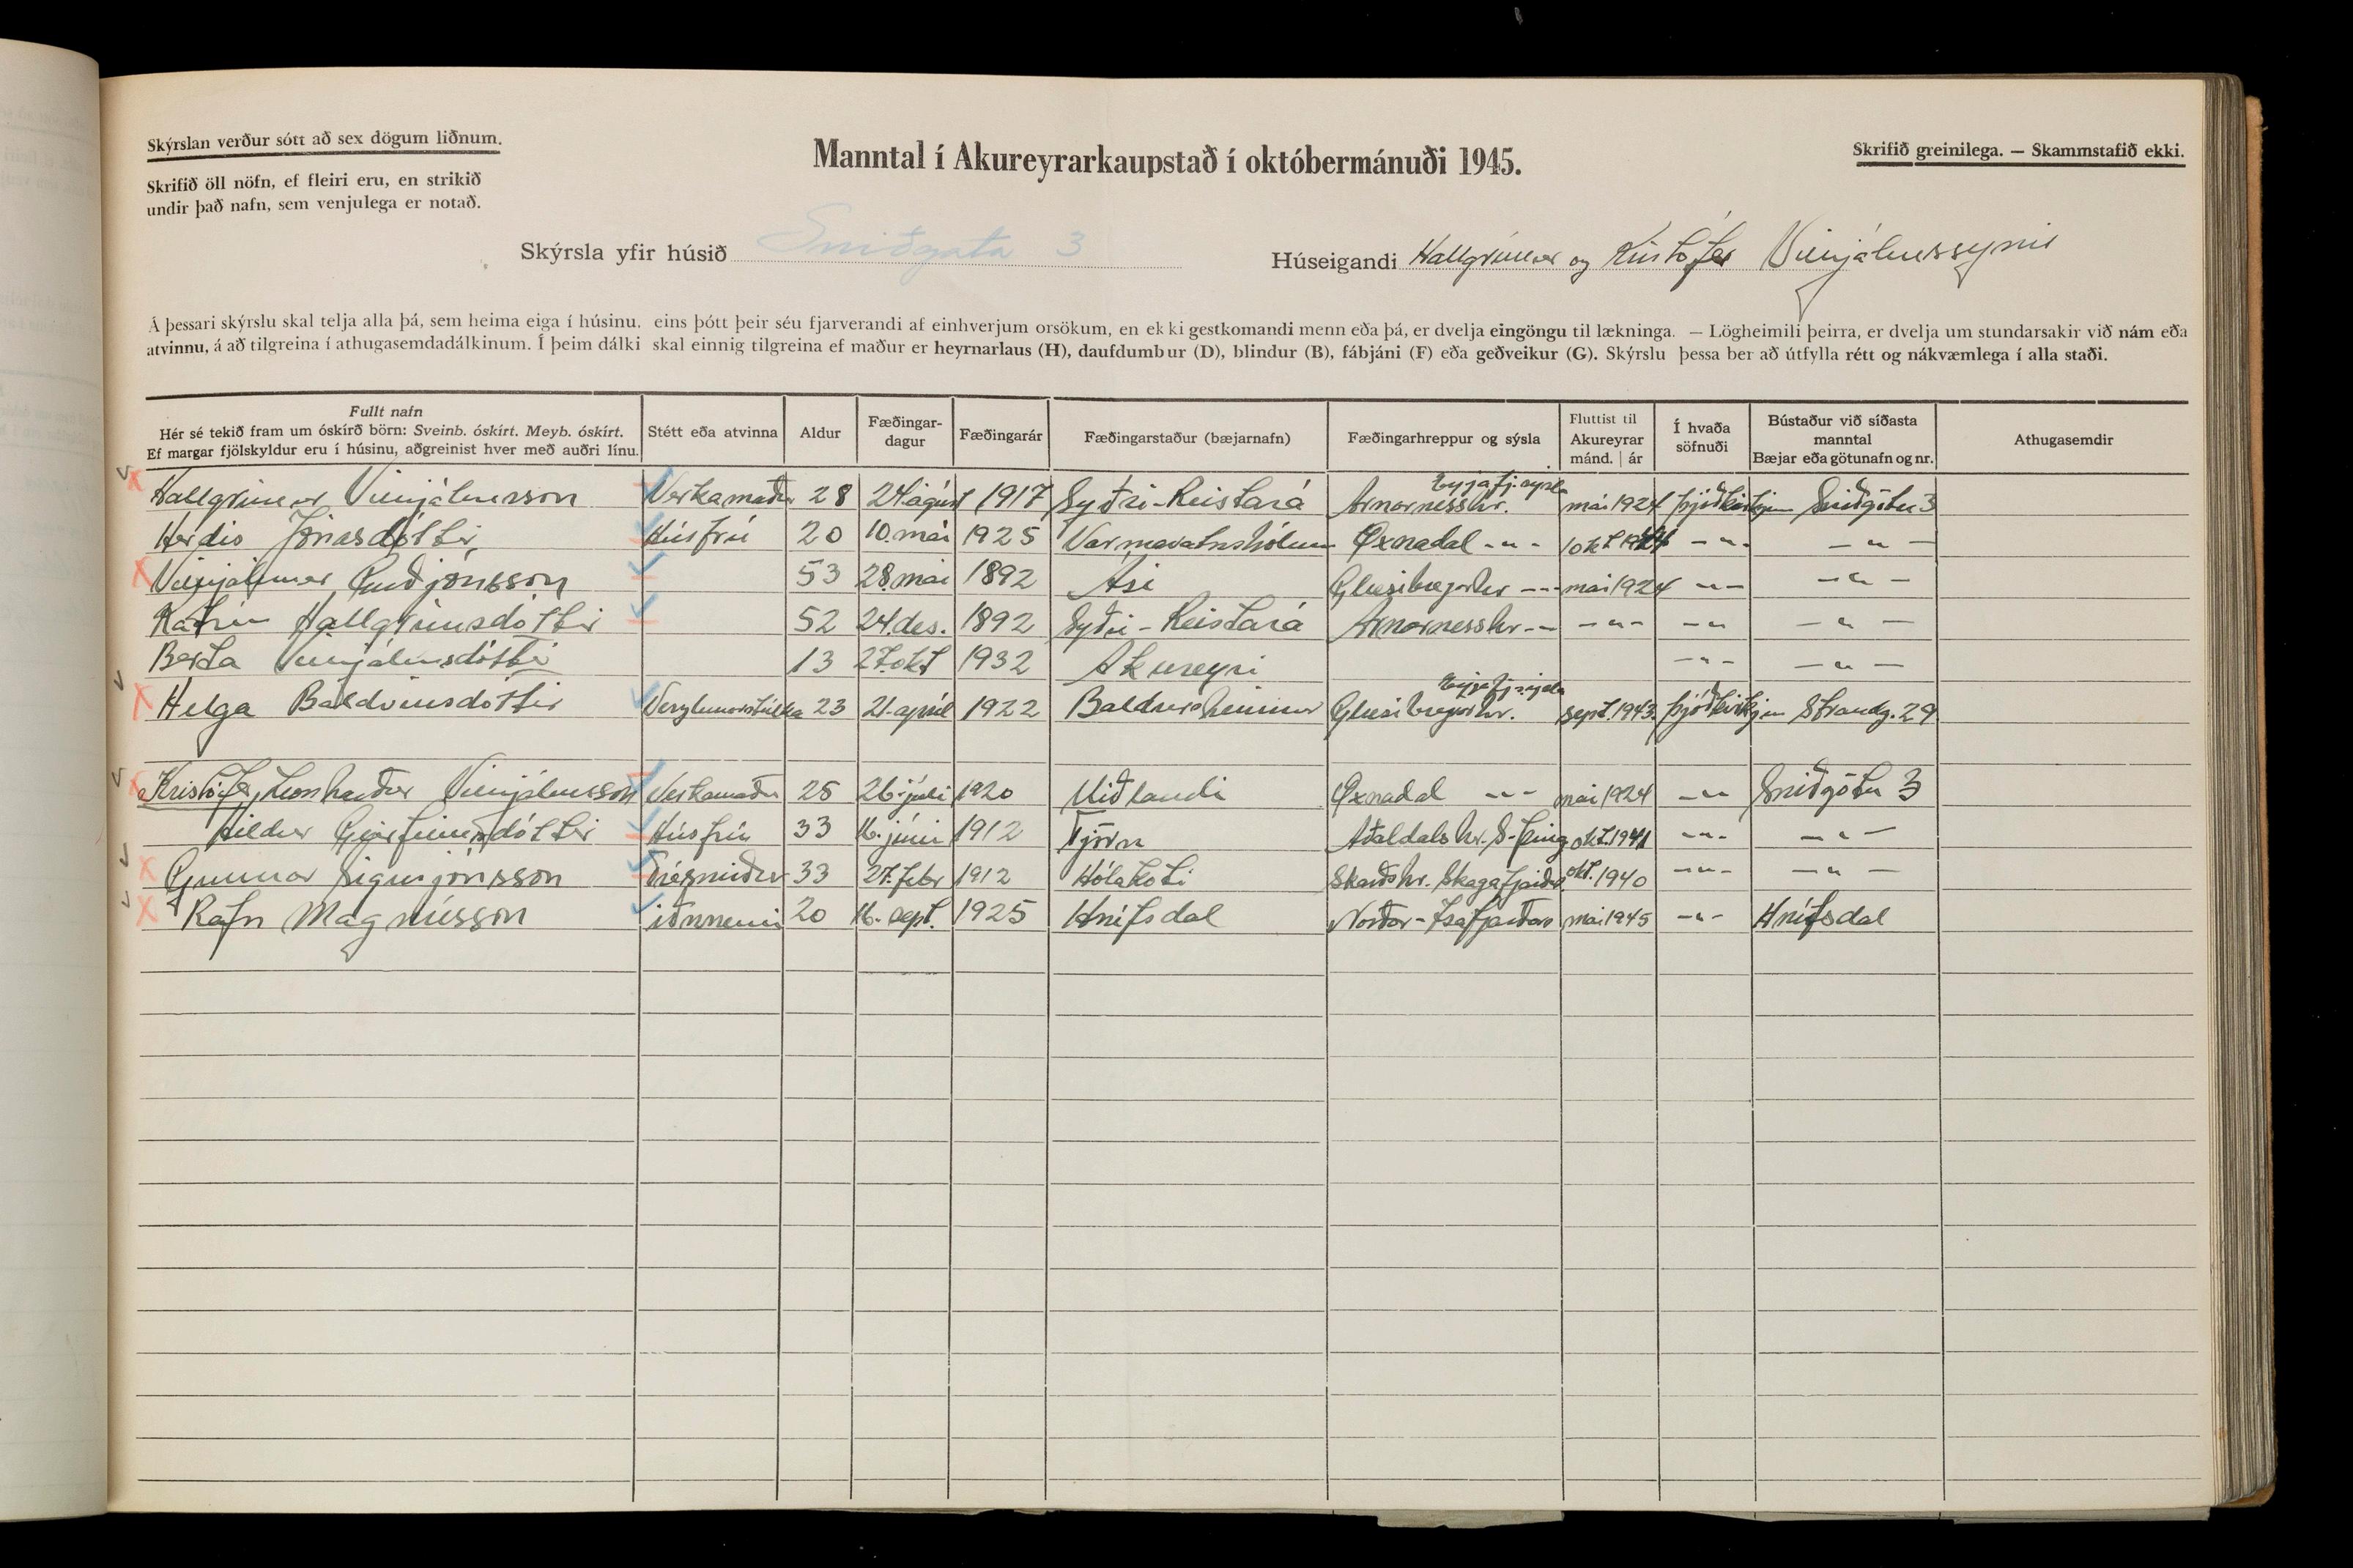 Skýrslan verður sótt að sex dögum liðnum.
Skrifið öll nöfn, ef fleiri eru, en strikið
undir það nafn, sem venjulega er notað.
Manntal í Akureyrarkaupstað í októbermánuði 1945.
Skrifið greinilega. — Skammstafið ekki.
Skýrsla yfir húsið Sniðgata 3
Húseigandi Hallgrímur og Kristófer Vilhjálmssynir
Á þessari skýrslu skal telja alla þá, sem heima eiga í húsinu, eins þótt þeir séu fjarverandi af einhverjum orsökum, en ekki gestkomandi menn eða þá, er dvelja eingöngu til lækninga. — Lögheimili þeirra, er dvelja um stundarsakir við nám eða
atvinnu, á að tilgreina í athugasemdadálkinum. Í þeim dálki skal einnig tilgreina ef maður er heyrnarlaus (H), daufdumbur (D), blindur (B), fábjáni (F) eða geðveikur (G). Skýrslu þessa ber að útfylla rétt og nákvæmlega í alla staði.
Fullt nafn
Hér sé tekið fram um óskírð börn: Sveinb. óskírt. Meyb. óskírt.
Ef margar fjölskyldur eru í húsinu, aðgreinist hver með auðri línu.
Stétt eða atvinna
Aldur
Fæðingar-
dagur
Fæðingarár
Fæðingarstaður (bæjarnafn)
Fæðingarhreppur og sýsla
Fluttist til
Akureyrar
mánd. | ár
Í hvaða
söfnuði
Bústaður við síðasta
manntal
Bæjar eða götunafn og nr.
Athugasemdir
Hallgrímur Vilhjálmsson Verkamaður 28 24 ágúst 1917 Syðri-Reistará Arnarnesshr. Eyjafj.sýsla maí 1924 þjóðkirkjan Sniðgötu 3
Herdís Jónasdóttir Húsfrú 20 10. maí 1925 Varmavatnshólum Öxnadal -"- 1 okt 1944 -"- -"-
Vilhjálmur Guðjónsson 53 28. maí 1892 Ási Glæsibæjarhr --- maí 1924 -"- -"-
Katrín Hallgrímsdóttir 52 24. des. 1892 Syðri-Reistará Arnarnesshr -"- -"- -"- -"-
Berta Vilhjálmsdóttir 13 27. okt 1932 Akureyri -"- -"-
Helga Baldvinsdóttir Verzlunarstúlka 23 21. apríl 1922 Baldursheimur Glæsibæjarhr. Eyjafj.sýsla sept. 1943 þjóðkirkjan Strandg. 29
Kristófer Leonharður Vilhjálmsson Verkamaður 25 26. júlí 1920 Miðlandi Öxnadal -"- maí 1924 -"- Sniðgötu 3
Hildur húsfrú 33 16. júní 1912 Tjörn Aðaldalshr. S-Þing. okt. 1941 -"- -"-
Gunnar Sigurjónsson Trésmiður 33 27. febr 1912 Hólakoti Skarðshr. Skagafjarðar okt. 1940 -"- -"-
Rafn Magnússon iðnnemi 20 16. sept. 1925 Hnífsdal Norður-Ísafjarðars maí 1945 -"- Hnífsdal